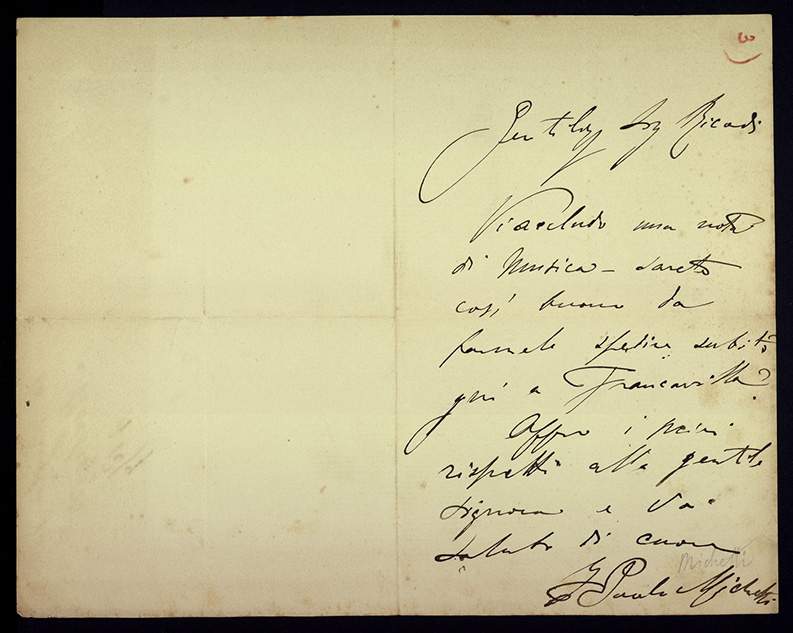 3
Gentiliss Sig Ricordi
Vi accludo una nota
di Musica - Sarete
così buono da
farmele spedire subito
qui a Francavilla?
Offro i miei
rispetti alla gentile
Signora e Va
saluto di cuore
F Paolo Michetti
Michetti